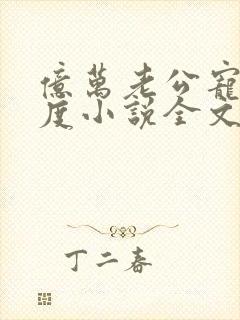 億萬老公寵
度小說全文
丁二春